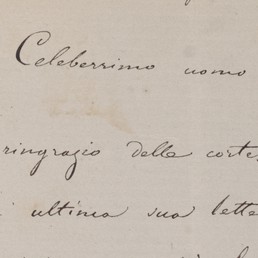 Celeberrimo uomo
ringrazio delle corte
ultima sua lette